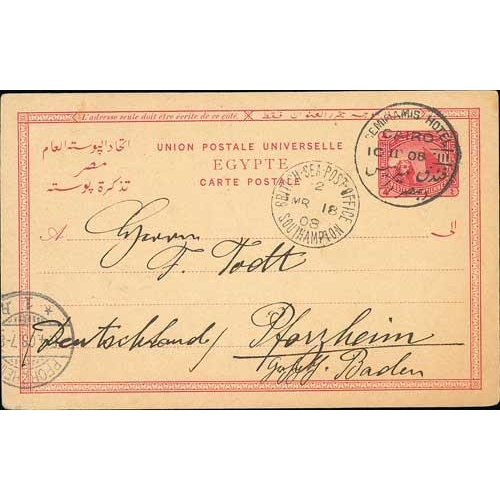 L'adresse seule doit être écrite de ce côté
SEMIRAMIS HOTEL
CAIRO
10 II 08
UNION POSTALE UNIVERSELLE
EGYPTE
CARTE POSTALE
اتحاد البوستة العام
مصر
تذكرة بوسته
BRITISH-SEA-POST-OFFICE
2
MR 18
08
SOUTHAMPTON
A
الى
Herrn
F. Todt
Deutschland/ Pforzheim
Baden